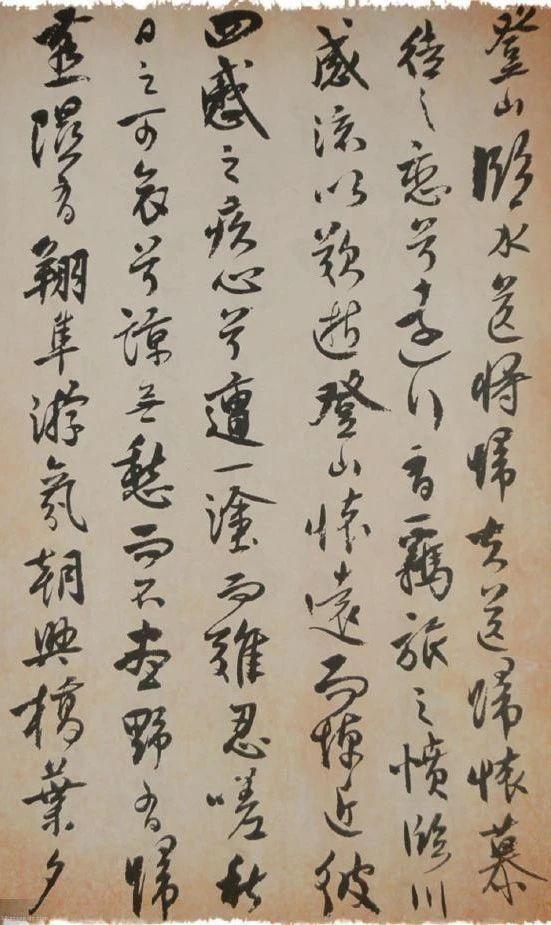 登山臨水送將歸夫送歸懷慕
徒之戀兮遠行有羈旅之憤臨川
感流以歎逝登山懷遠而悼近彼
四感之疚心兮遭一塗而難忍嗟秋
日之可哀兮諒無愁而不盡野有歸
燕隰有翔隼游氛朝興槁葉夕